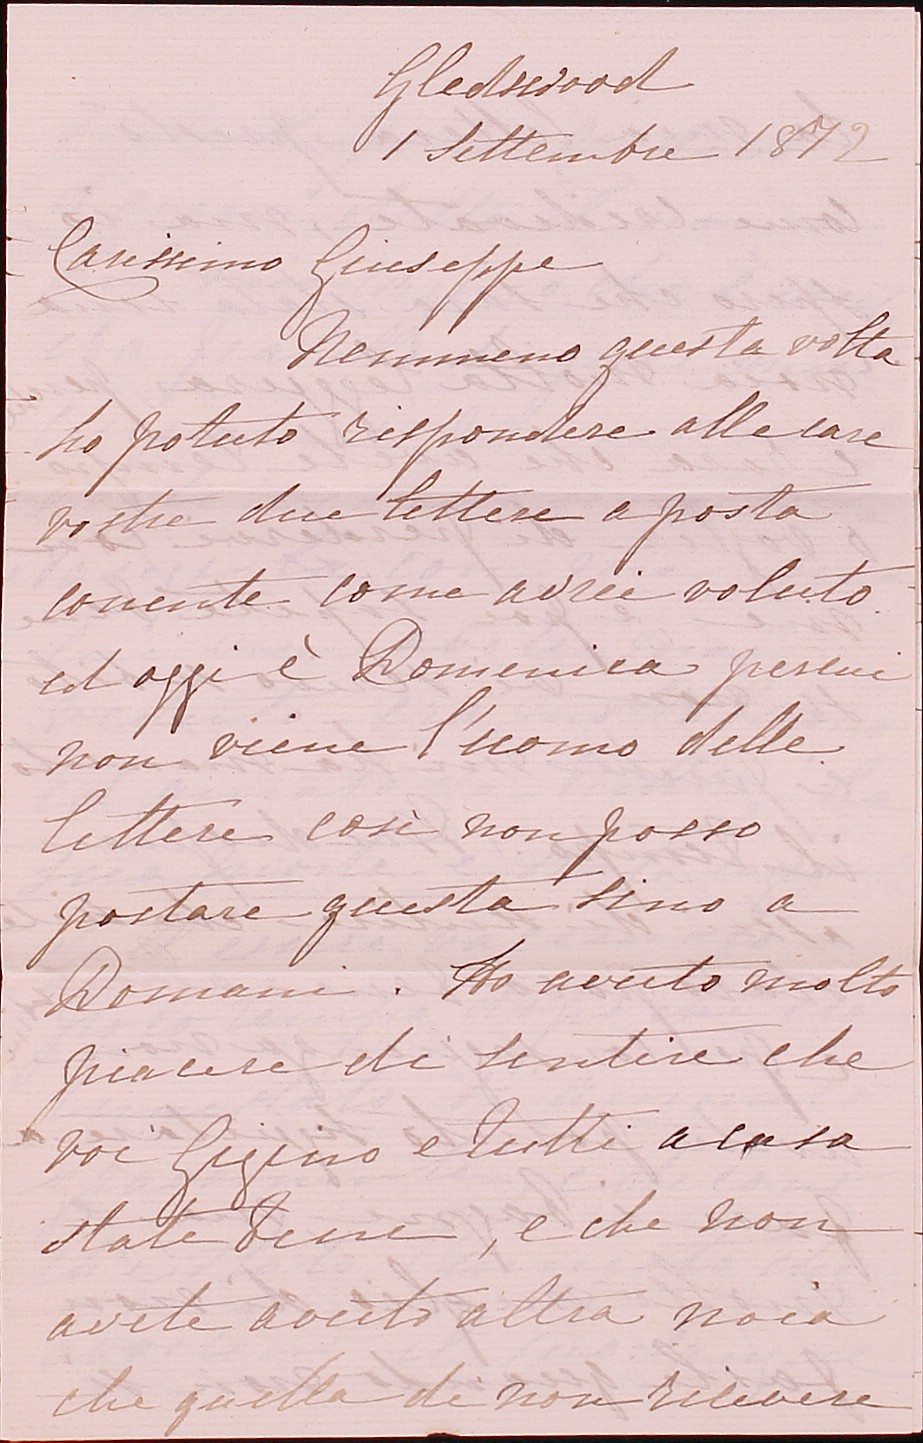 Gledswood
1 Settembre 1872
Carissimo Giuseppe
Nemmeno questa volta
ho potuto rispondere alle care
vostre due lettere a posta
corrente come avrei voluto
ed oggi è Domenica per cui
non viene l'uomo delle
lettere così non posso
postare questa sino a
Domani. Ho avuto molto
piacere di sentire che
voi Gigino e tutti a casa
state bene, e che non
avete avuto altra noia
che quella di non ricevere